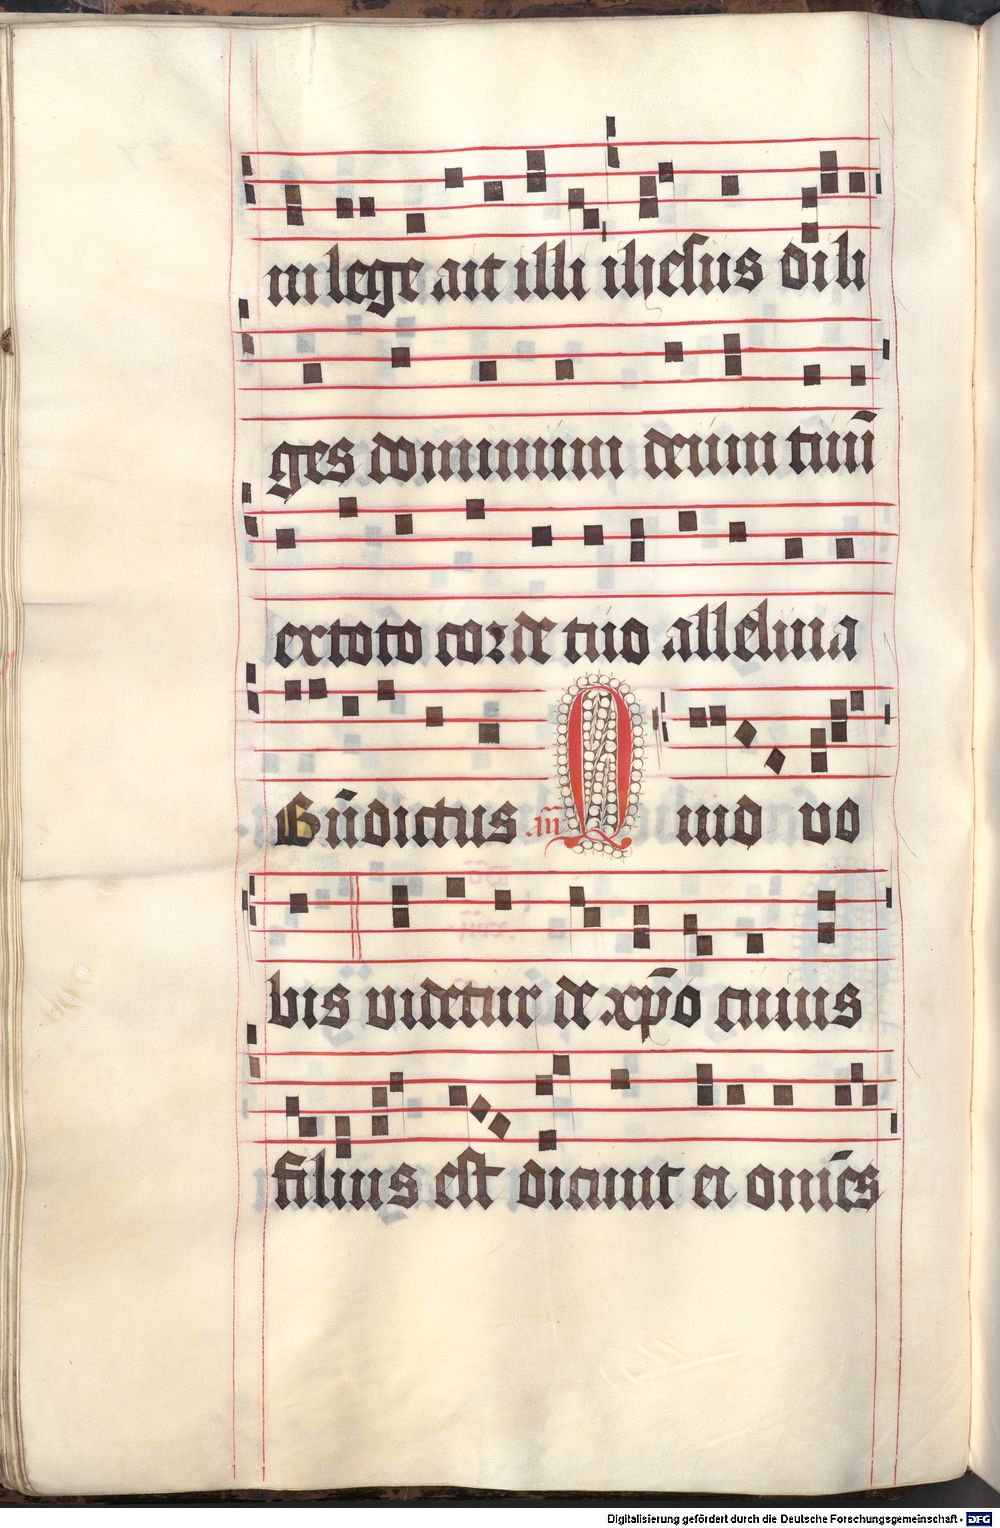 in lege ait illi ihesus dili
ges dominum deum tuū
ex toto corde tuo alleluia
Bn̄dictus an̄ Quid vo
bis videtur de xp̄o cuius
filius est dicunt ei om̄es
Digitalisierung gefördert durch die Deutsche Forschungsgemeinschaft - DFG